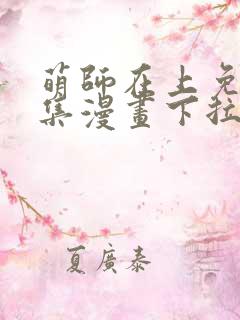 萌師在上免
集漫畫下拉
夏廣泰